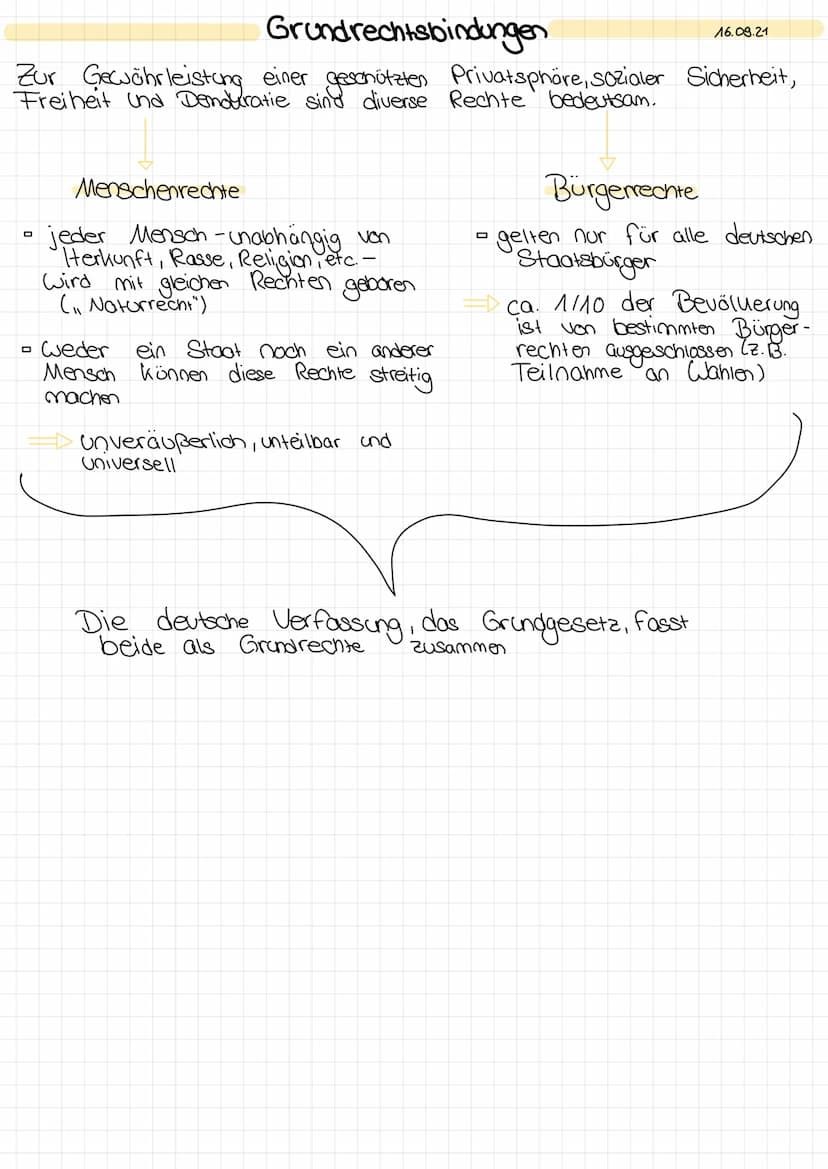 Grundrechtsbindungen
16.09.21
Zur Gewährleistung einer geschützten Privatsphöre, sozialer Sicherheit,
Freiheit und Demokratie sind diverse Rechte bedeutsam.
Menschenrechte
▫ jeder Mensch - unabhängig von
Herkunft, Rasse, Religion, etc. -
wird mit gleichen Rechten geboren
(„Naturrecht")
▫ weder ein Staat noch ein anderer
Mensch können diese Rechte streitig
machen
⇒ unveräußerlich, unteilbar und
universell
Bürgerrechte
▫ gelten nur für alle deutschen
Staatsbürger
⇒ ca. 1/10 der Bevölkerung
ist von bestimmten Bürger-
rechten ausgeschlossen (z.B.
Teilnahme an Wahlen)
Die deutsche Verfassung, das Grundgesetz, fasst
beide als Grundrechte zusammen